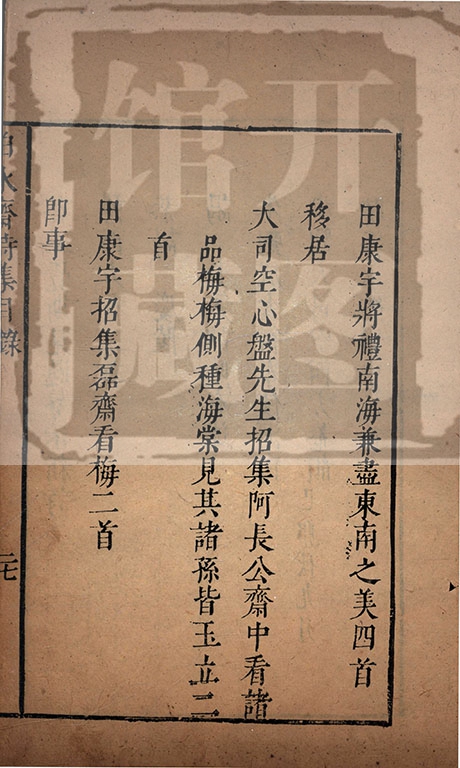 田康宇將禮南海兼盡東南之美四首
移居
大司空心盤先生招集阿長公齋中看諸
品梅梅側種海棠見其諸孫皆玉立二
首
田康宇招集磊齋看梅二首
卽事
白水齋詩集目錄
二七
开图馆藏